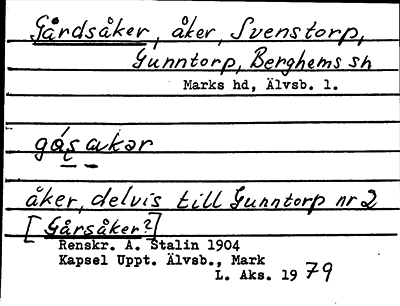 Gårdsåker, åker, Svenstorp,
Gunntorp, Berghems sn
Marks hd, Älvsb. l.
åker, delvis till Gunntorp nr 2
[Gårsåker?]
Renskr. A. Stalin 1904
Kapsel Uppt. Älvsb., Mark
L. Aks. 1979